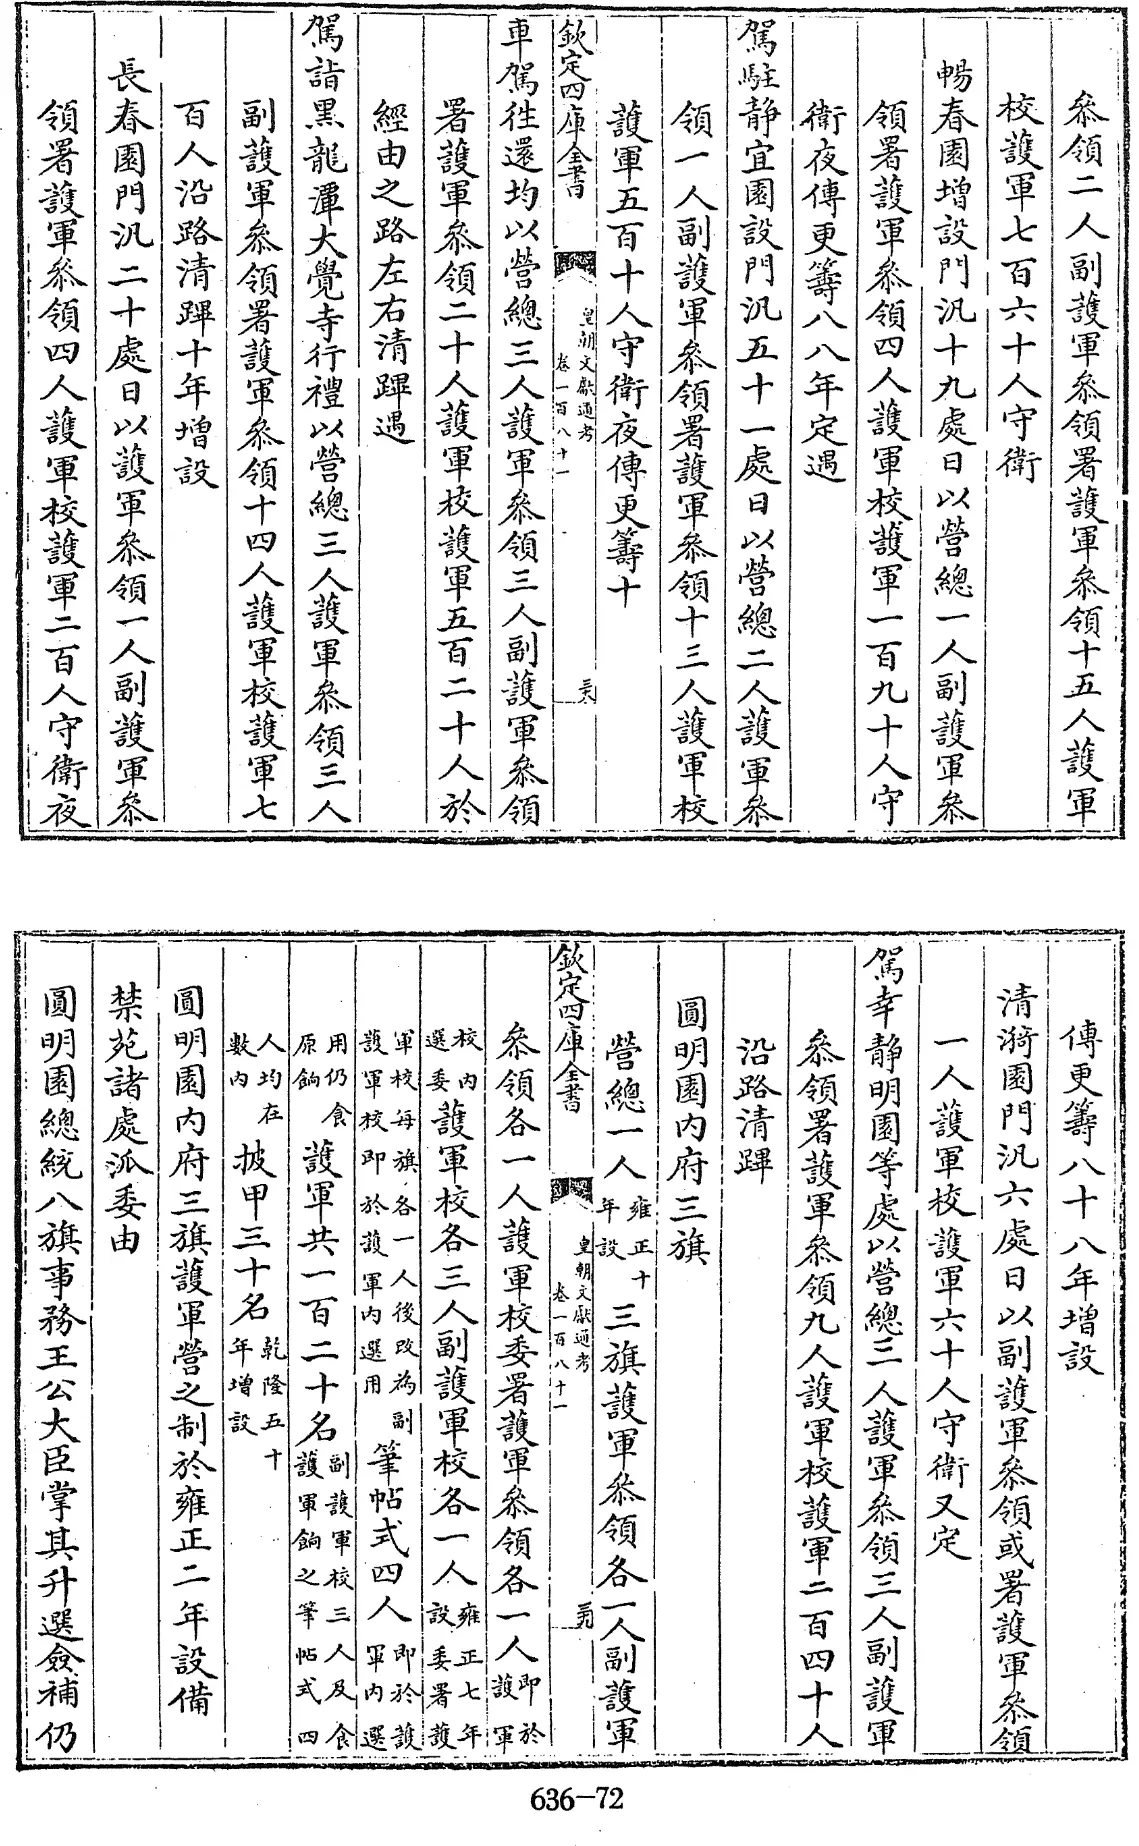 叅領二人副護軍叅領署護軍叅領十五人護軍
校護軍七百六十人守衛
暢春園增設門汛十九處日以營總一人副護軍叅
領署護軍叅領四人護軍校護軍一百九十人守
衛夜傳更籌八八年定遇
駕駐静宜園設門汛五十一處日以營總二人護軍叅
領一人副護軍叅領署護軍叅領十三人護軍校
護軍五百十人守衛夜傳更籌十
欽定四庫全書
皇朝文獻通考
卷一百八十一
三十八
車駕徃還均以營總三人護軍叅領三人副護軍叅領
署護軍叅領二十人護軍校護軍五百二十人於
經由之路左右清蹕遇
駕詣黑龍潭大覺寺行禮以營總三人護軍叅領三人
副護軍叅領署護軍叅領十四人護軍校護軍七
百人沿路清蹕十年增設
長春園門汛二十處日以護軍叅領一人副護軍叅
領署護軍叅領四人護軍校護軍二百人守衛夜
傳更籌八十八年增設
清漪園門汛六處日以副護軍叅領或署護軍叅領
一人護軍校護軍六十人守衛又定
駕幸静明園等處以營總三人護軍叅領三人副護軍
叅領署護軍叅領九人護軍校護軍二百四十人
沿路清蹕
圓明園内府三旗
營總一人雍正十年設三旗護軍叅領各一人副護軍
欽定四庫全書
皇朝文獻通考
卷一百八十一
三十九
叅領各一人護軍校委署護軍叅領各一人即於護軍
校内選委護軍校各三人副護軍校各一人雍正七年設委署護
軍校每旗各一人後改為副護軍校即於護軍内選用筆帖式四人即於護軍内選
用仍食原餉護軍共一百二十名副護軍校三人及食護軍餉之筆帖式四
人均在數内披甲三十名乾隆五十年增設
圓明園内府三旗護軍營之制於雍正二年設備
禁苑諸處派委由
圓明園總統八旗事務王公大臣掌其升選僉補仍
636-72